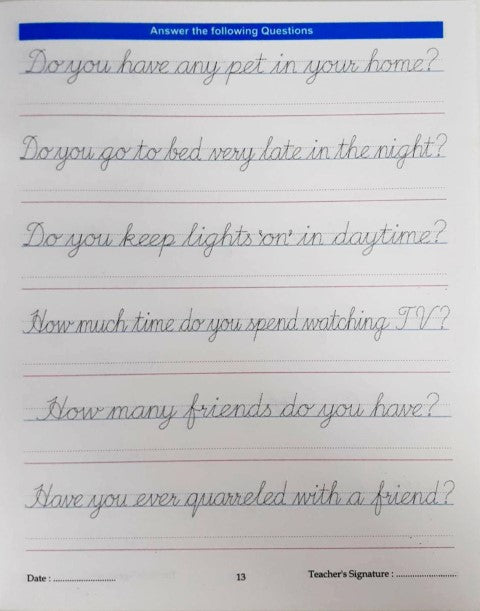 Answer the following Questions
Do you have any pet in your home?
Do you go to bed very late in the night?
Do you keep lights 'on' in daytime?
How much time do you spend watching TV?
How many friends do you have?
Have you ever quarreled with a friend?
Date : ........................ 13 Teacher's Signature : ........................